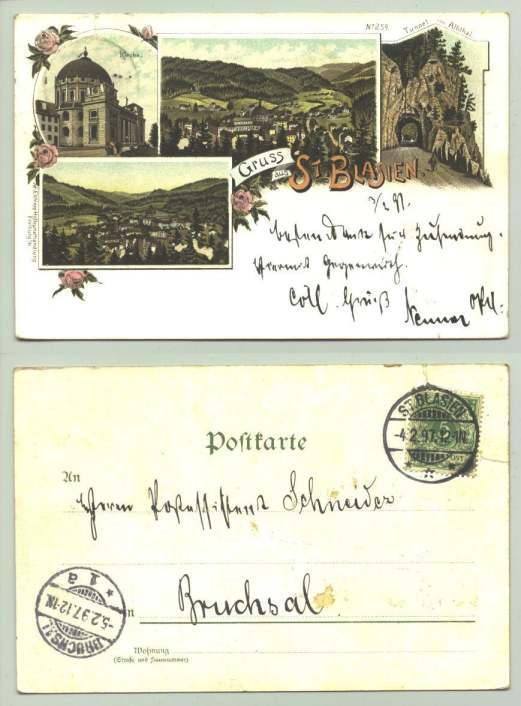 Kirche.
No 259.
Tunnel im Albthal.
Gruss
aus
ST. BLASIEN.
3/2 97.
besten Dank für Zusendung.
Coll. Gruß
Postkarte
ST. BLASIEN
-4.2.97.12-1N.
5
An
Herrn Postassistent Schneider
in Bruchsal.
BRUCHSAL
-5.2.97.12-1N.
* 1a
Wohnung
(Straße und Hausnummer)